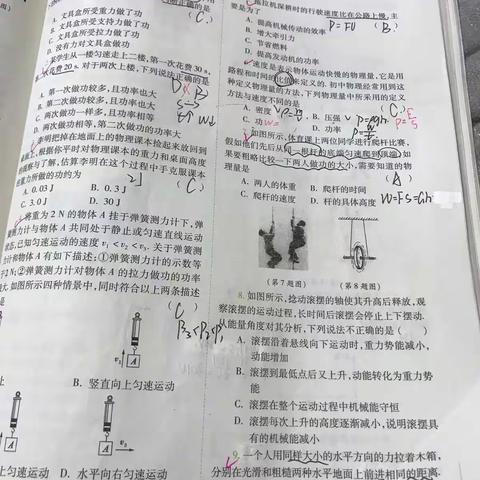 A. 文具盒所受重力做了功
B. 文具盒所受支持力做了功
C. 文具盒所受拉力做了功
D. 没有力对文具盒做功
某学生从一楼匀速走上二楼,第一次花费30 s,
第二次花费20 s. 对于两次上楼,下列说法正确的是
A. 第一次做功较多,且功率也大
B. 第二次做功较多,且功率也大
C. 两次做功一样多,且功率相等
D. 两次做功相等,第二次做功的功率大
李明把掉在地面上的物理课本捡起来放回到
上,根据你平时对物理课本的重力和桌面高度
观察与了解,估算李明在这个过程中于克服课本
重力所做的功约为
A. 0.03 J B. 0.3 J
C. 3.0 J D. 30 J
将重为2 N的物体A挂于弹簧测力计下,弹
簧测力计与物体A共同处于静止或匀速直线运动
状态,已知匀速运动的速度v₁<v₂<v₃. 关于弹簧测
力计和物体A有如下描述:①弹簧测力计的示数等
于2 N;②弹簧测力计对物体A的拉力做功的功率
最大. 如图所示四种情景中,同时符合以上两条描述
的是
P₃<P₂<P₁
v₁ A
B. 竖直向上匀速运动
A A v₃
上匀速运动 D. 水平向右匀速运动
拖拉机深耕时的行驶速度比在公路上慢,主
要是为了 P=FV (B)
A. 提高机械传动的效率
B. 增大牵引力
C. 节省燃料
D. 提高发动机的功率
速度是表示物体运动快慢的物理量,它是用
路程和时间的比值来定义的. 初中物理经常用到这
种定义物理量的方法,下列物理量中所采用的定义
方法与速度不同的是 (C)
A. 密度 B. 压强
C. 功 D. 功率
如图所示,体育课上两位同学进行爬杆比赛,
假如他们先后从同一根杆的底端匀速爬到顶端,如
果要粗略比较一下两人做功的大小,需要知道的物
理量是 (A)
A. 两人的体重 B. 爬杆的时间
C. 爬杆的速度 D. 杆的具体高度 W=FS=Gh
(第7题图) (第8题图)
8. 如图所示,捻动滚摆的轴使其升高后释放,观
察滚摆的运动过程,长时间后滚摆会停止上下摆动.
从能量角度对其分析,下列说法不正确的是 ( )
A. 滚摆沿着悬线向下运动时,重力势能减小,
动能增加
B. 滚摆到最低点后又上升,动能转化为重力势
能
C. 滚摆在整个运动过程中机械能守恒
D. 滚摆每次上升的高度逐渐减小,说明滚摆具
有的机械能减小
9. 一个人用同样大小的水平方向的力拉着木箱,
分别在光滑和粗糙两种水平地面上前进相同的距离.